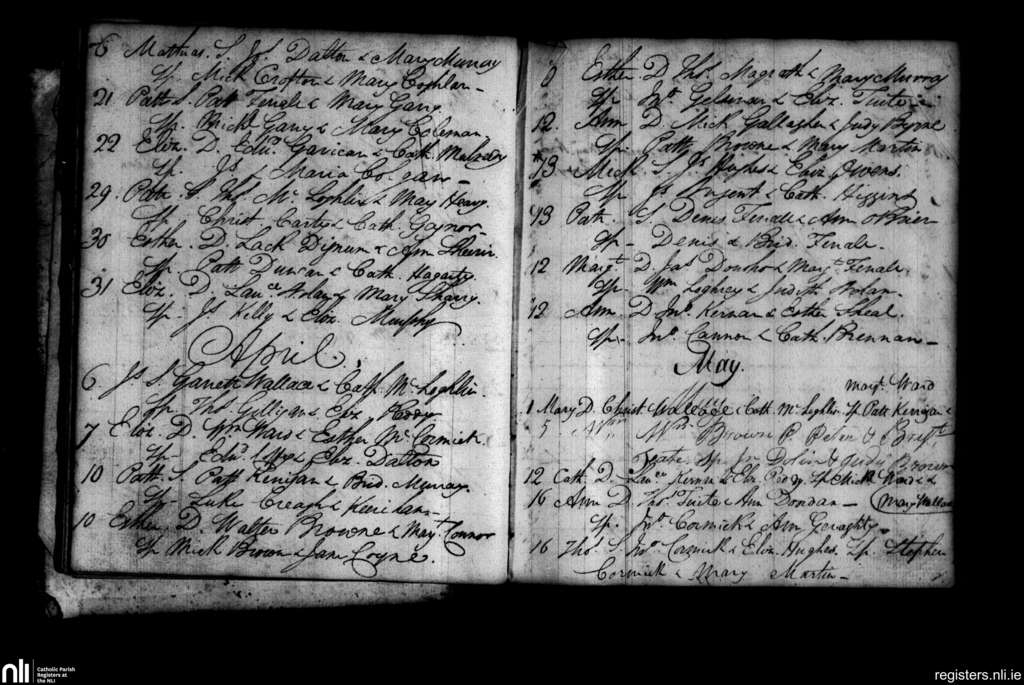 6 Mathias. S. Js. Dalton & Mary Murray
Sp. Mick Crofton & Mary Coghlan -
21 Patt S. Patt Fenale & Mary Gary
Sp. Mick Gary & Mary Coleman
22 Eliz. D. Edwd. Gavican & Cath.
Sp. Js & Maria Cogan -
29 Patk. S Ths. Mc Loghlin & Mary Heavy.
Sp. Christ. Carty & Cath Gaynor -
30 Esther. D. Lack. & Ann
Sp. Patt Duncan & Cath. Hagarty
31 Eliz. D. Laue. & Mary
Sp. Js Kelly & Eliz. Murphy
April
6. Js S. Garrett Wallace & Cath Mc Loghlin.
Sp. Thos. Gilligan & Eliz Reddy
7 Eliz. D. Wm Ward & Esther Mc Cormick.
Sp - Edwd. & Eliz. Dalton
10 Patt. S Patt Kerrigan & Brid. Murray.
Sp. Luke Creagh &
10 Esther D. Walter Browne & Mary. Connor
Sp Mick Brown & Jane Coyne.
8 Esther. D. Ths. Magrath & Mary Murray
Sp. Jno. & Eliz. Tuite
12. Ann D. Mick Gallagher & Judy Byrne
Sp. Patt Browne & Mary Martin
13 Mick. S. Js Hughes & Eliz Owens.
Sp. Js Nugent & Cath. Higgins
13 Patk. S. Denis Fenale & Ann OBrien
Sp - Denis & Brid. Fenale.
12 Margt. D. Jas. Donoho & Margt. Fenale
Sp. Wm & Judith Nolan.
12 Ann. D Jno. Kernan & Esther Sheal.
Sp. Jno. Cannon & Cath. Brennan -
May.
Margt. Ward
1 Mary D. Christ. Wallace & Cath Mc Loghlin Sp Patt Kerrigan &
5 Wm Brown P. Peter & Bridt.
Tuite Sp. Jn Dolan & Judy Brown
12 Cath. D. Laue. Kernan & Eliz Reddy. Sp Mick Ward &
Mary Wallace
16 Ann D Thos. Tuite & Ann Dondan -
Sp. Jno. Cormick & Ann Geraghty -
16 Thos. S Jno. Cormick & Eliz. Hughes, Sp. Stephen
Cormick & Mary Martin -
nli
Catholic Parish
Registers at
the NLI
registers.nli.ie